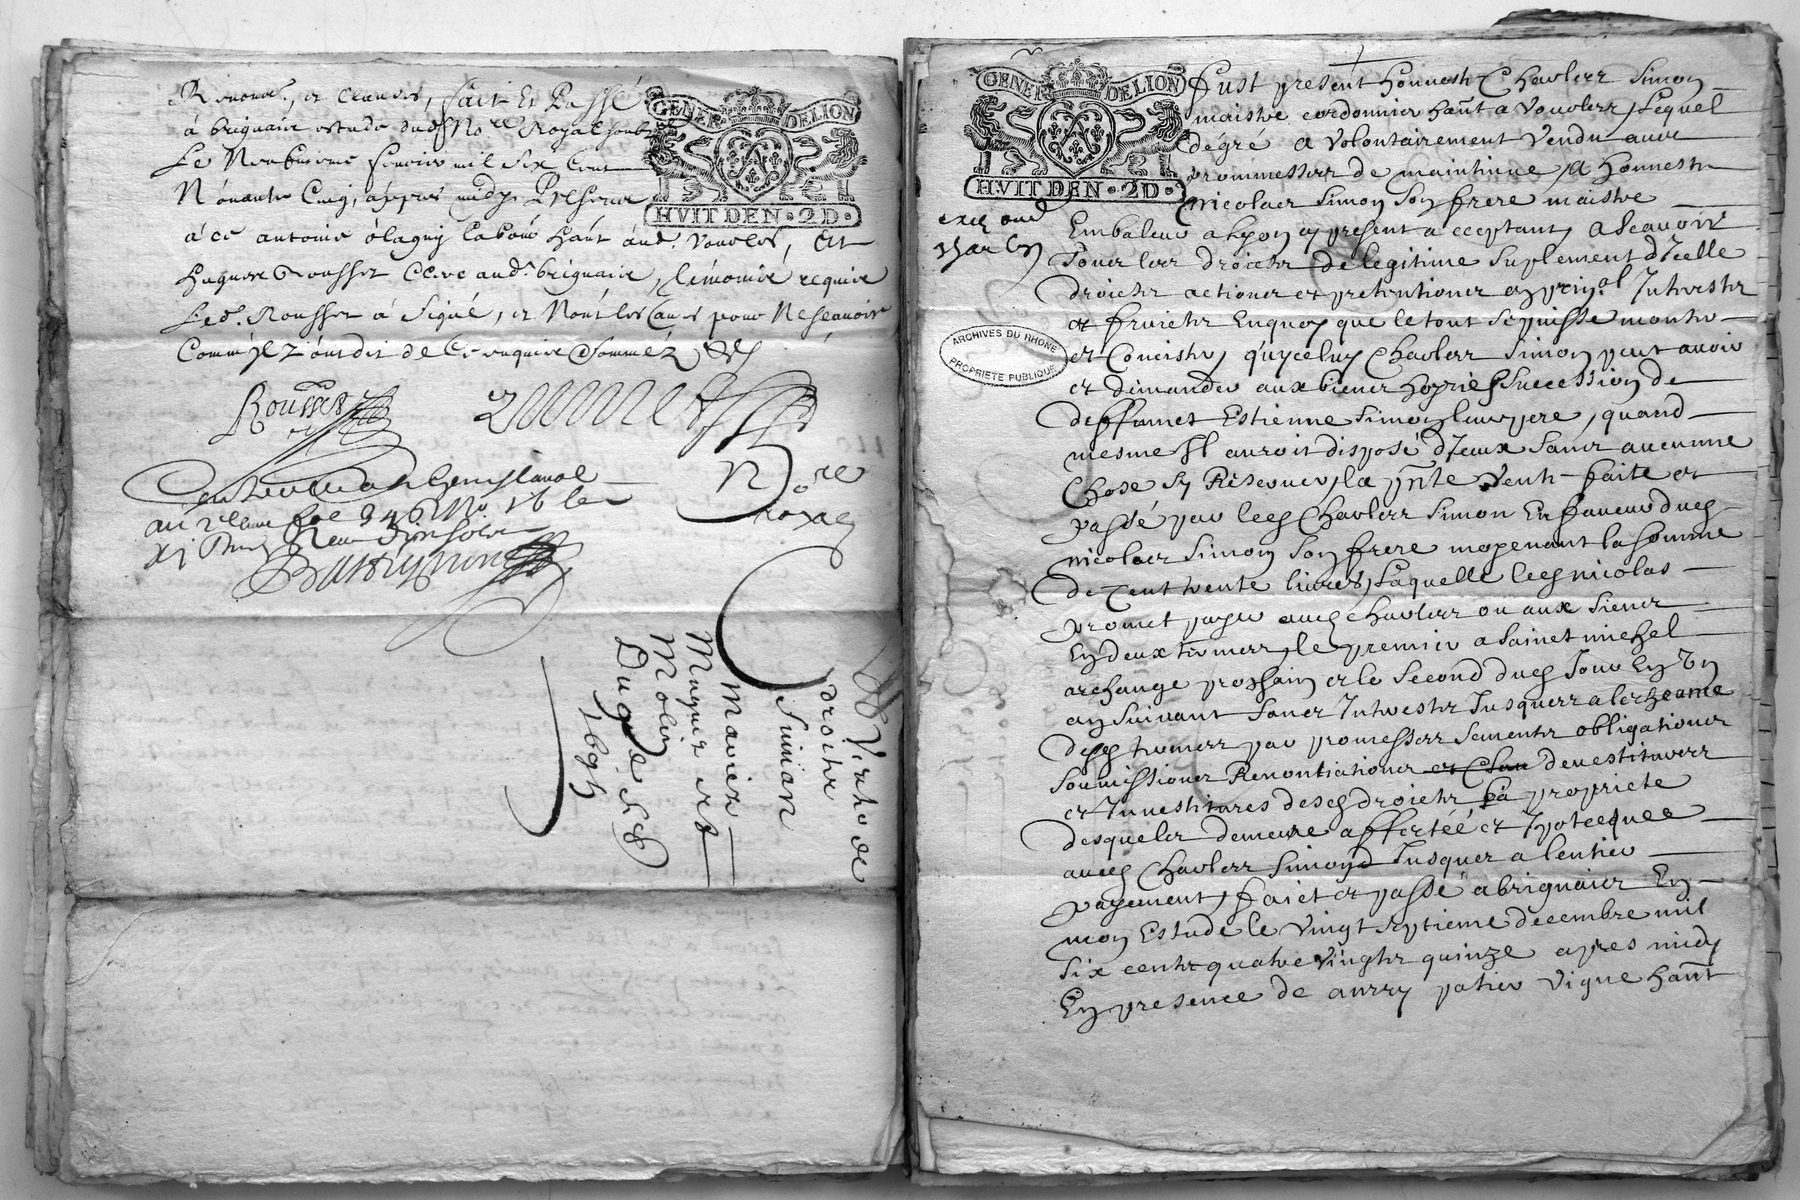 Renonces, et clauses, fait Et Passé
à brignais estude dud. No.re Royal soub.
Le Neufviesme fevrier mil six cent
Nonante Cinq, appres midy Presence
à ce antoine olagny habitant aud. Vourles, Et
Rousset clerc aud. brignais, temoins requis
Led. Rousset à signé, et Non les autres pour Ne scavoir
Comme ilz ont dit de Ce enquis & sommez
GENER DELION
HVIT DEN. 2D.
Rousset
No.re
royal
Vinte de
droits
Simian
Mavier
Muguet et
Molin
Du 9e fev.
1695
GENER DELION
HVIT DEN. 2D.
fust present honneste Charles Simon
maistre cordonnier habt a Vourles, Lequel
de gré a Volontairement Vendu avec
prommesses de maintenue a honneste
nicolas Simon Son frere maistre
Embaleur a Lyon cy present acceptant, a Scavoir
Tous les droicts de legitime suplement d'Icelle
droicts actions et pretentions en prin.al Interests
et fruicts Enquoy que le tout se puisse monter
et Concister, qu'yceluy Charles Simon peut avoir
et demander aux biens hoyrie & succession de
deffunct Estienne Simon leur pere, quand
mesme Il auroit disposé d'Iceux Sans aucunne
Chose sy Réserver, la pnte Vente faite et
passé par led. Charles Simon En faveur dud.
nicolas Simon Son frere moyenant la somme
de Cent trente livres, Laquelle led. nicolas
promet payer aud. Charles ou aux siens
En deux termes, le premier a Sainct michel
archange prochain et le second dud. Jour En Un
an suivant Sans Interests Jusques a lescheance
desd. termes par promesses serments obligations
Soumissions Renontiations et devestitures
et Investitures desd. droicts La propriete
desquels demeure affectée et Ipotecquee
aud. Charles Simond Jusques a lentier
payement, faict et passé a brignais En
mon Estude le vingt septieme decembre mil
six cents quatre vingts quinze apres midy
En presence de patier Vigne habt
ARCHIVES DU RHONE
PROPRIETE PUBLIQUE